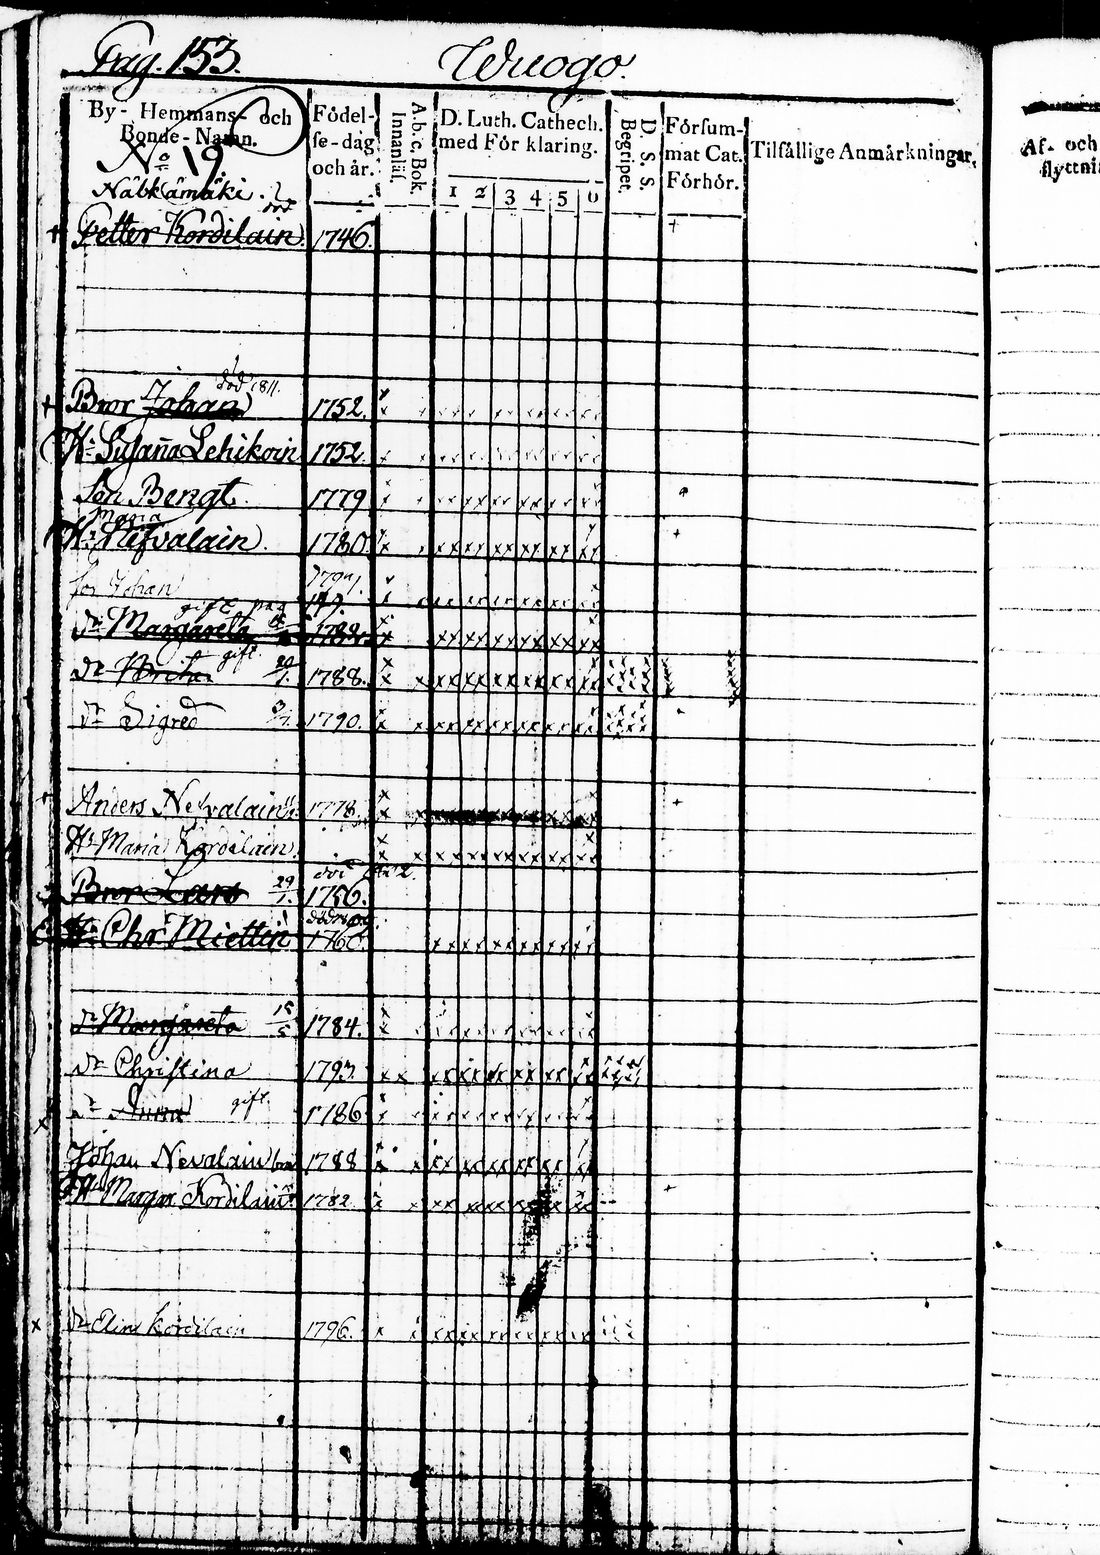 Pag. 153.
Wuogo.
By- Hemmans- och
Bonde-Namn.
Födel-
se-dag
och år.
A.b.c. Bok.
Innanläs.
D. Luth. Cathech.
med För klaring.
1 2 3 4 5 6
D. S. S.
Begripet.
Försum-
mat Cat.
Förhör.
Tilfällige Anmärkningar.
Af- och
flyttni
No 19.
Näbkämäki.
död
Petter Kordilain 1746.
död 1811.
Bror Johan 1752.
H: Susaña Lehikoin 1752.
Son Bengt 1779
Maria
H: Nefvalain 1780
son Johan 1797
gift pag
dr Margareta 1782
gift
dr Brita 20/1. 1788.
dr Sigred 1790.
Anders Nefvalain 1778.
H: Maria Kordilain
död
Bror Lars 29/1. 1756.
H: Chr Miettin 1760
dr Margareta 15/5 1784.
dr Christina 1793.
dr Anna gift 1786
Johan Nevalain 1788
H: Margar Kordilain 1782.
dr Elin Kordilain 1796.